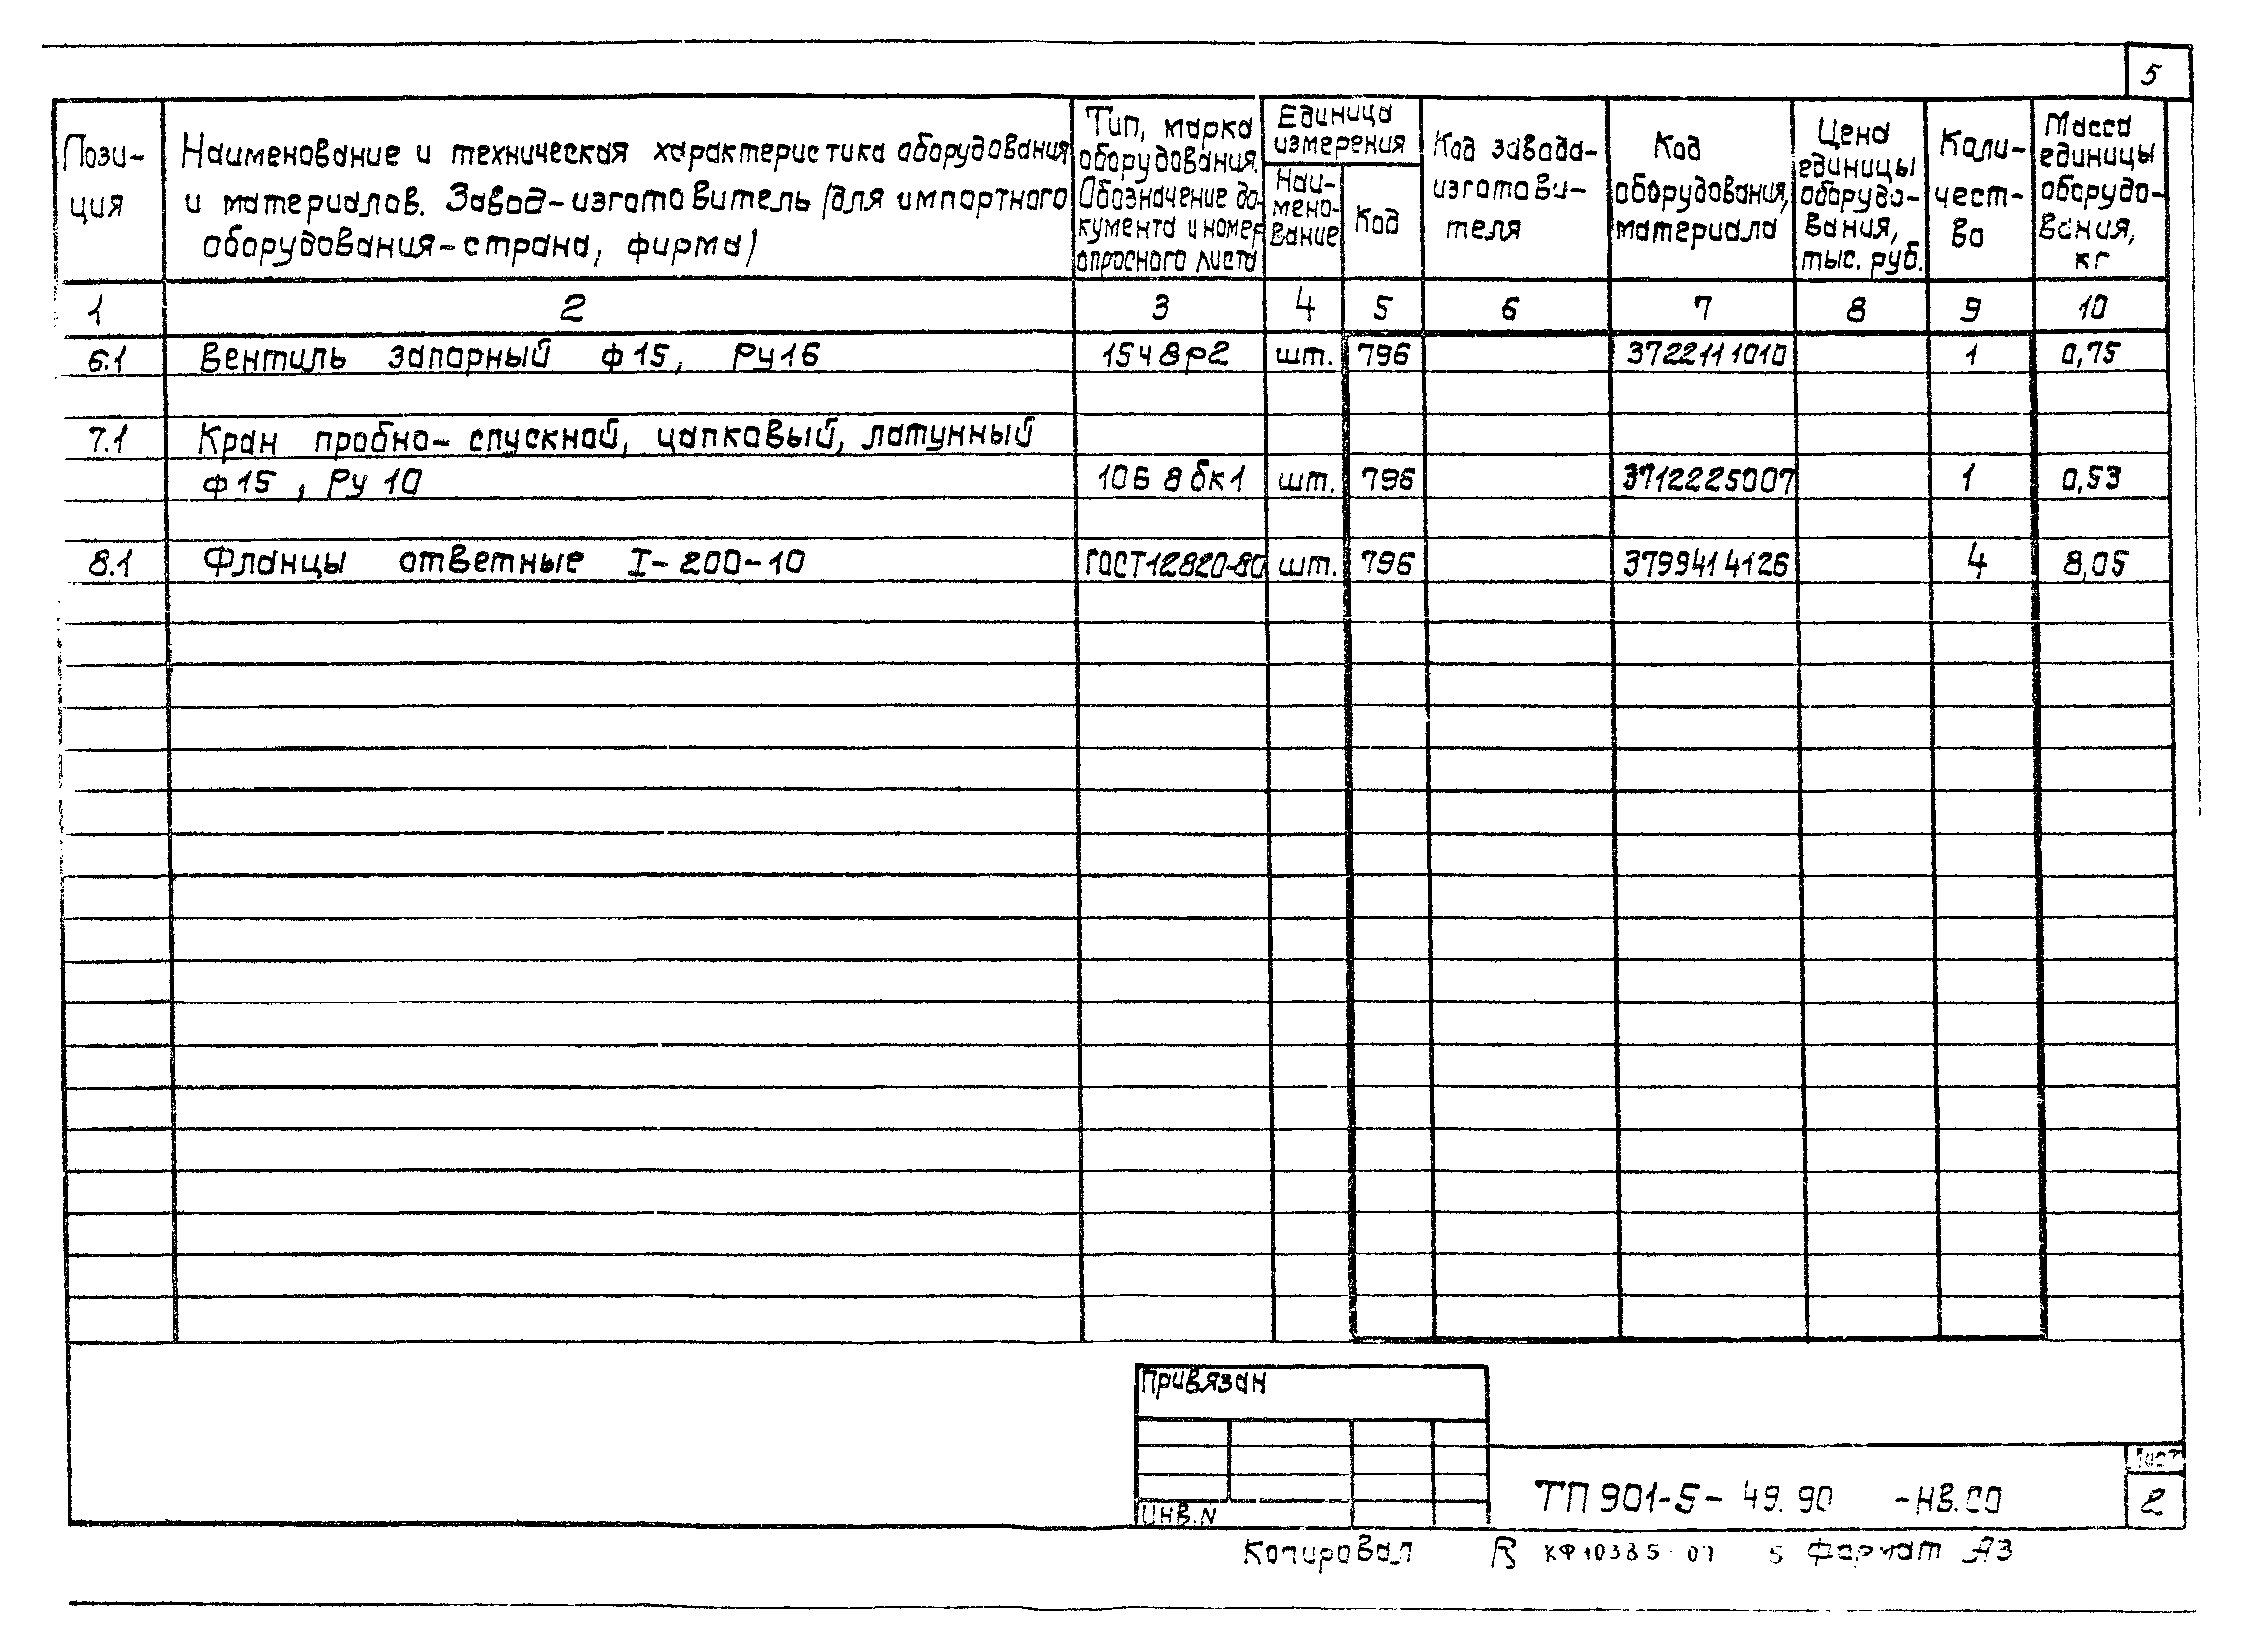 5
Пози-
ция
Наименование и техническая характеристика оборудования
и материалов. Завод-изготовитель (для импортного
оборудования-страна, фирма)
Тип, марка
оборудования.
Обозначение до-
кумента и номер
опросного листа
Единица
измерения
Наи-
мено-
вание
Код
Код завода-
изготови-
теля
Код
оборудования,
материала
Цена
единицы
оборудо-
вания,
тыс. руб.
Коли-
чест-
во
Масса
единицы
оборудо-
вания,
кг
1 2 3 4 5 6 7 8 9 10
6.1 Вентиль запорный ф15, Ру16 15ч8р2 шт. 796 3722111010 1 0,75
7.1 Кран пробно-спускной, цапковый, латунный
ф15, Ру 10 10Б 8 бк1 шт. 796 3712225007 1 0,53
8.1 Фланцы ответные I-200-10 ГОСТ12820-80 шт. 796 3799414126 4 8,05
Привязан
Инв.N
ТП 901-5-49.90 -НВ.СО
Лист
2
Копировал КФ10385-07 5 Формат А3